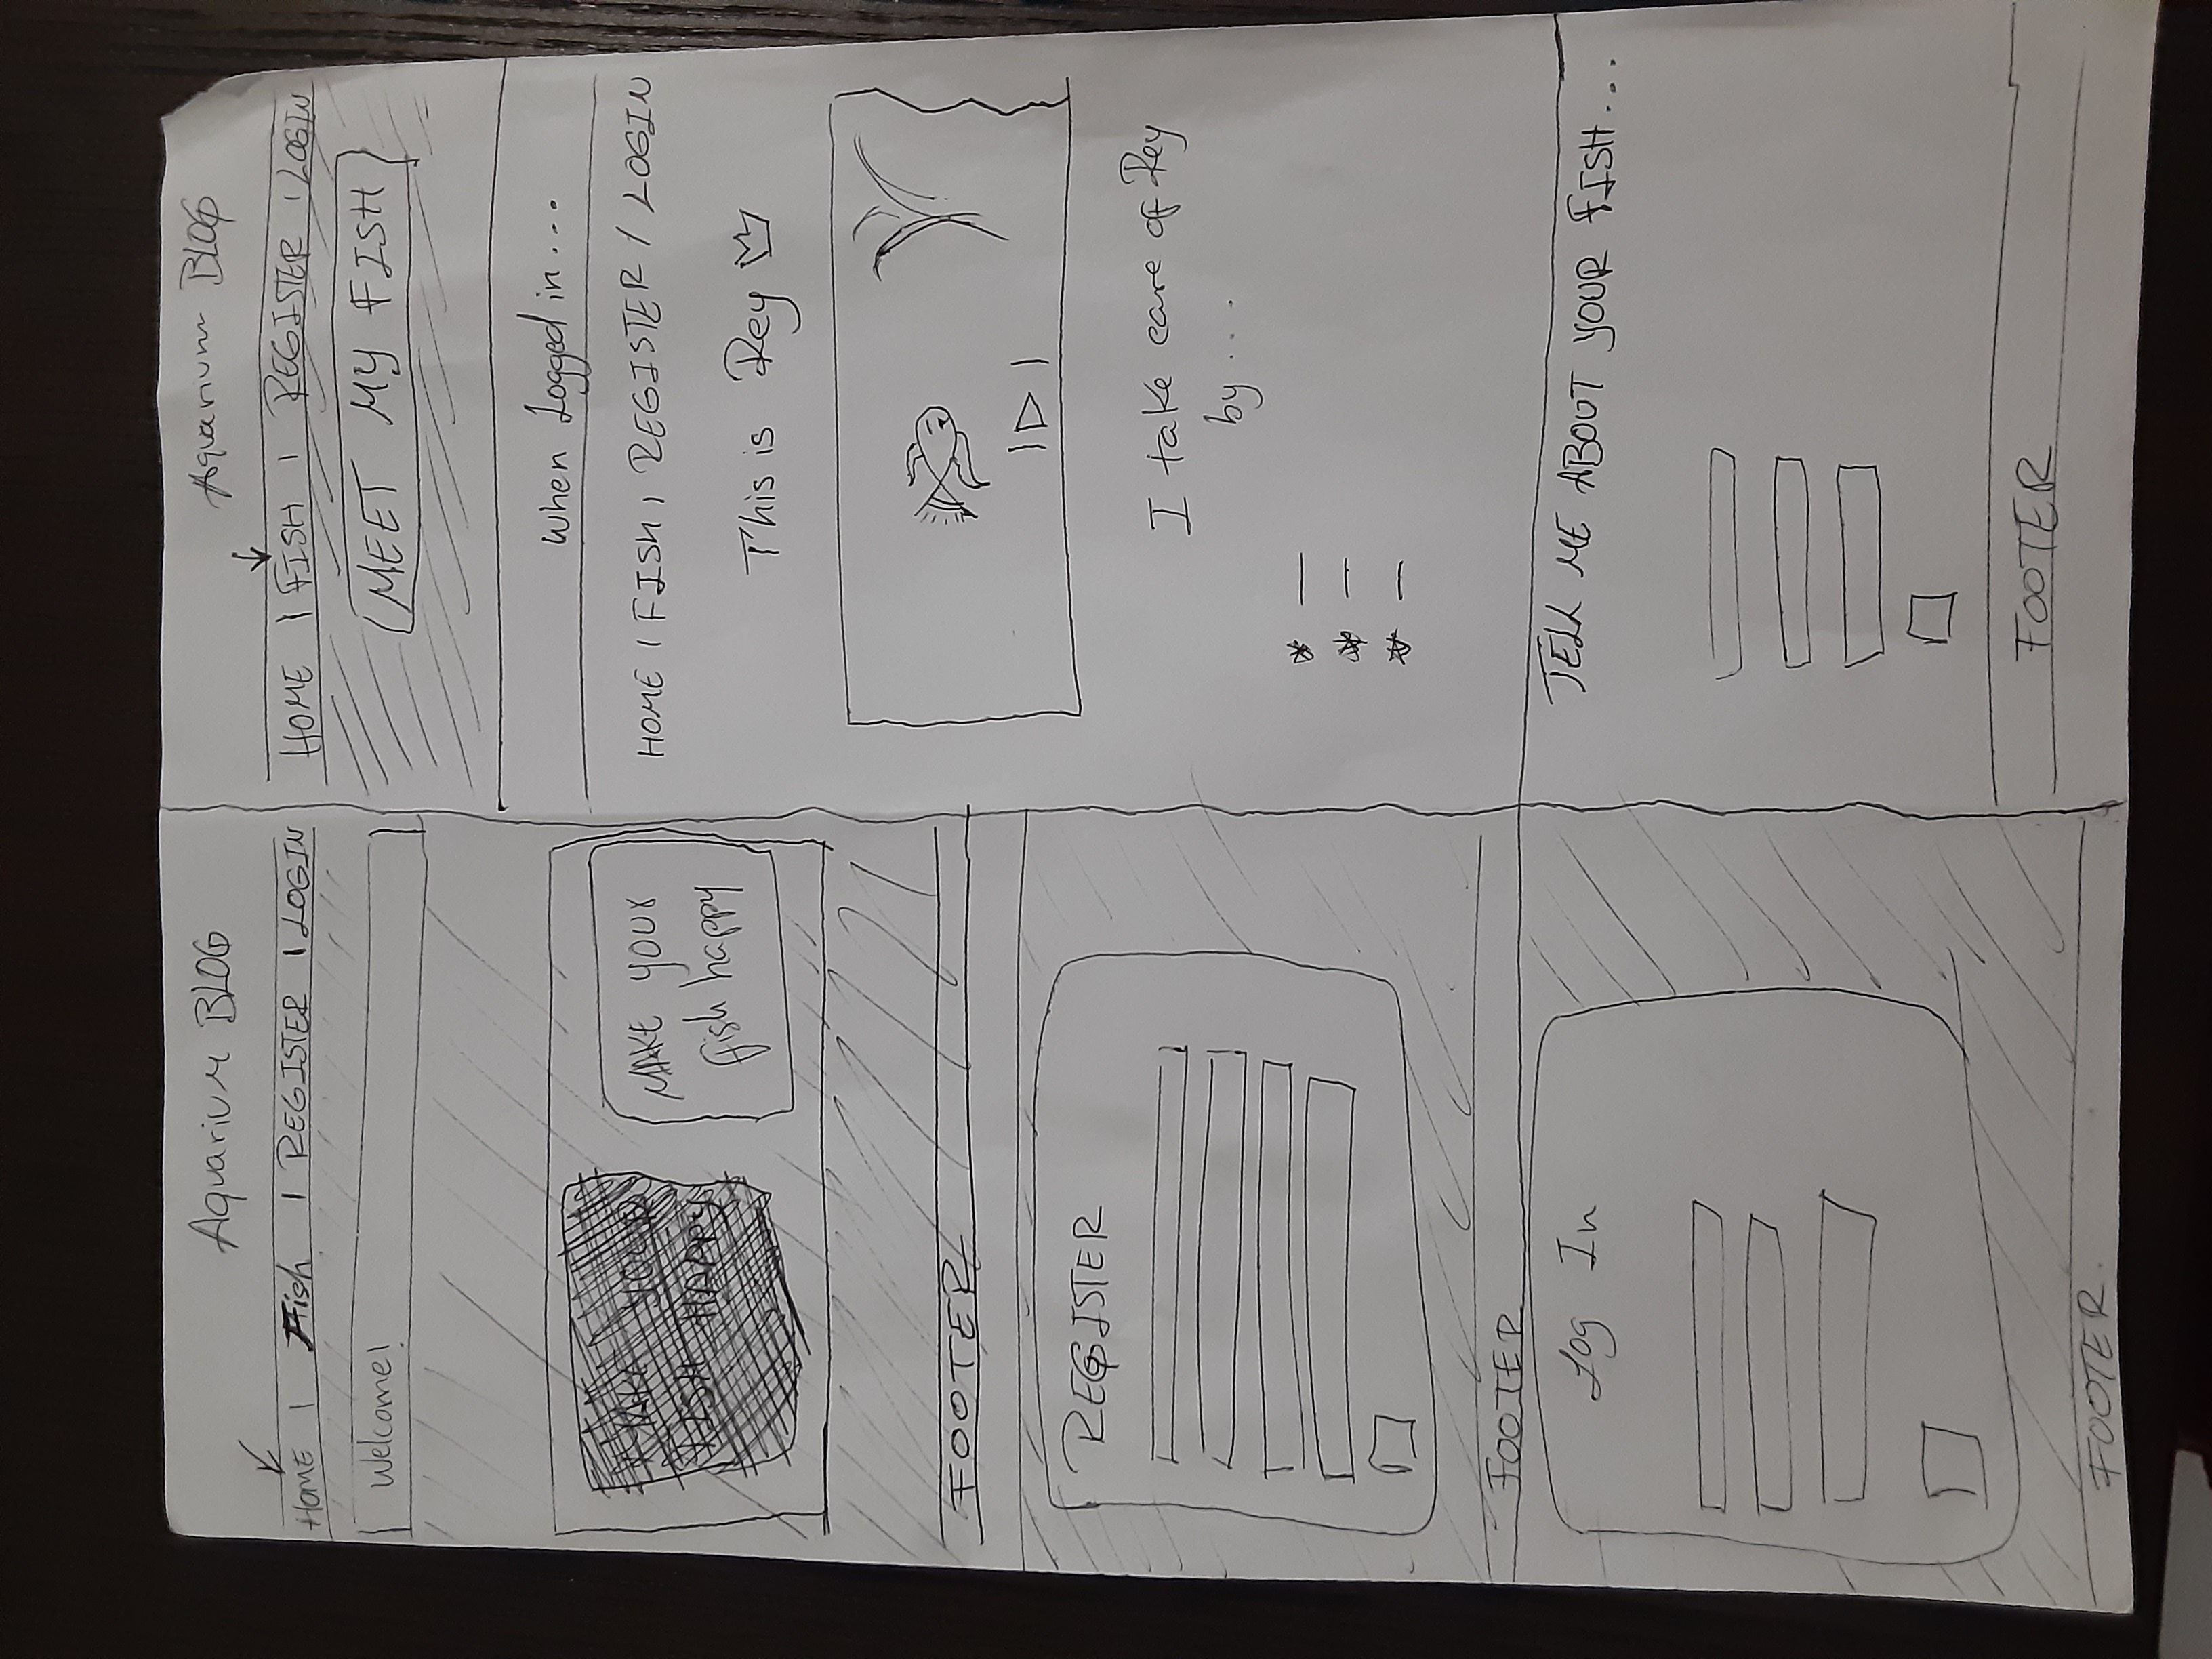 Aquarium BLOG
HOME | Fish | REGISTER | LOGIN
Welcome!
MAKE YOUR
FISH HAPPY
MAKE your
fish happy
FOOTER
REGISTER
FOOTER
Log In
FOOTER.
Aquarium BLOG
HOME | FISH | REGISTER | LOGIN
MEET MY FISH
When Logged in...
HOME | FISH | REGISTER / LOGIN
This is Rey
I take care of Rey
by ....
* —
* —
* —
TELL ME ABOUT YOUR FISH...
FOOTER